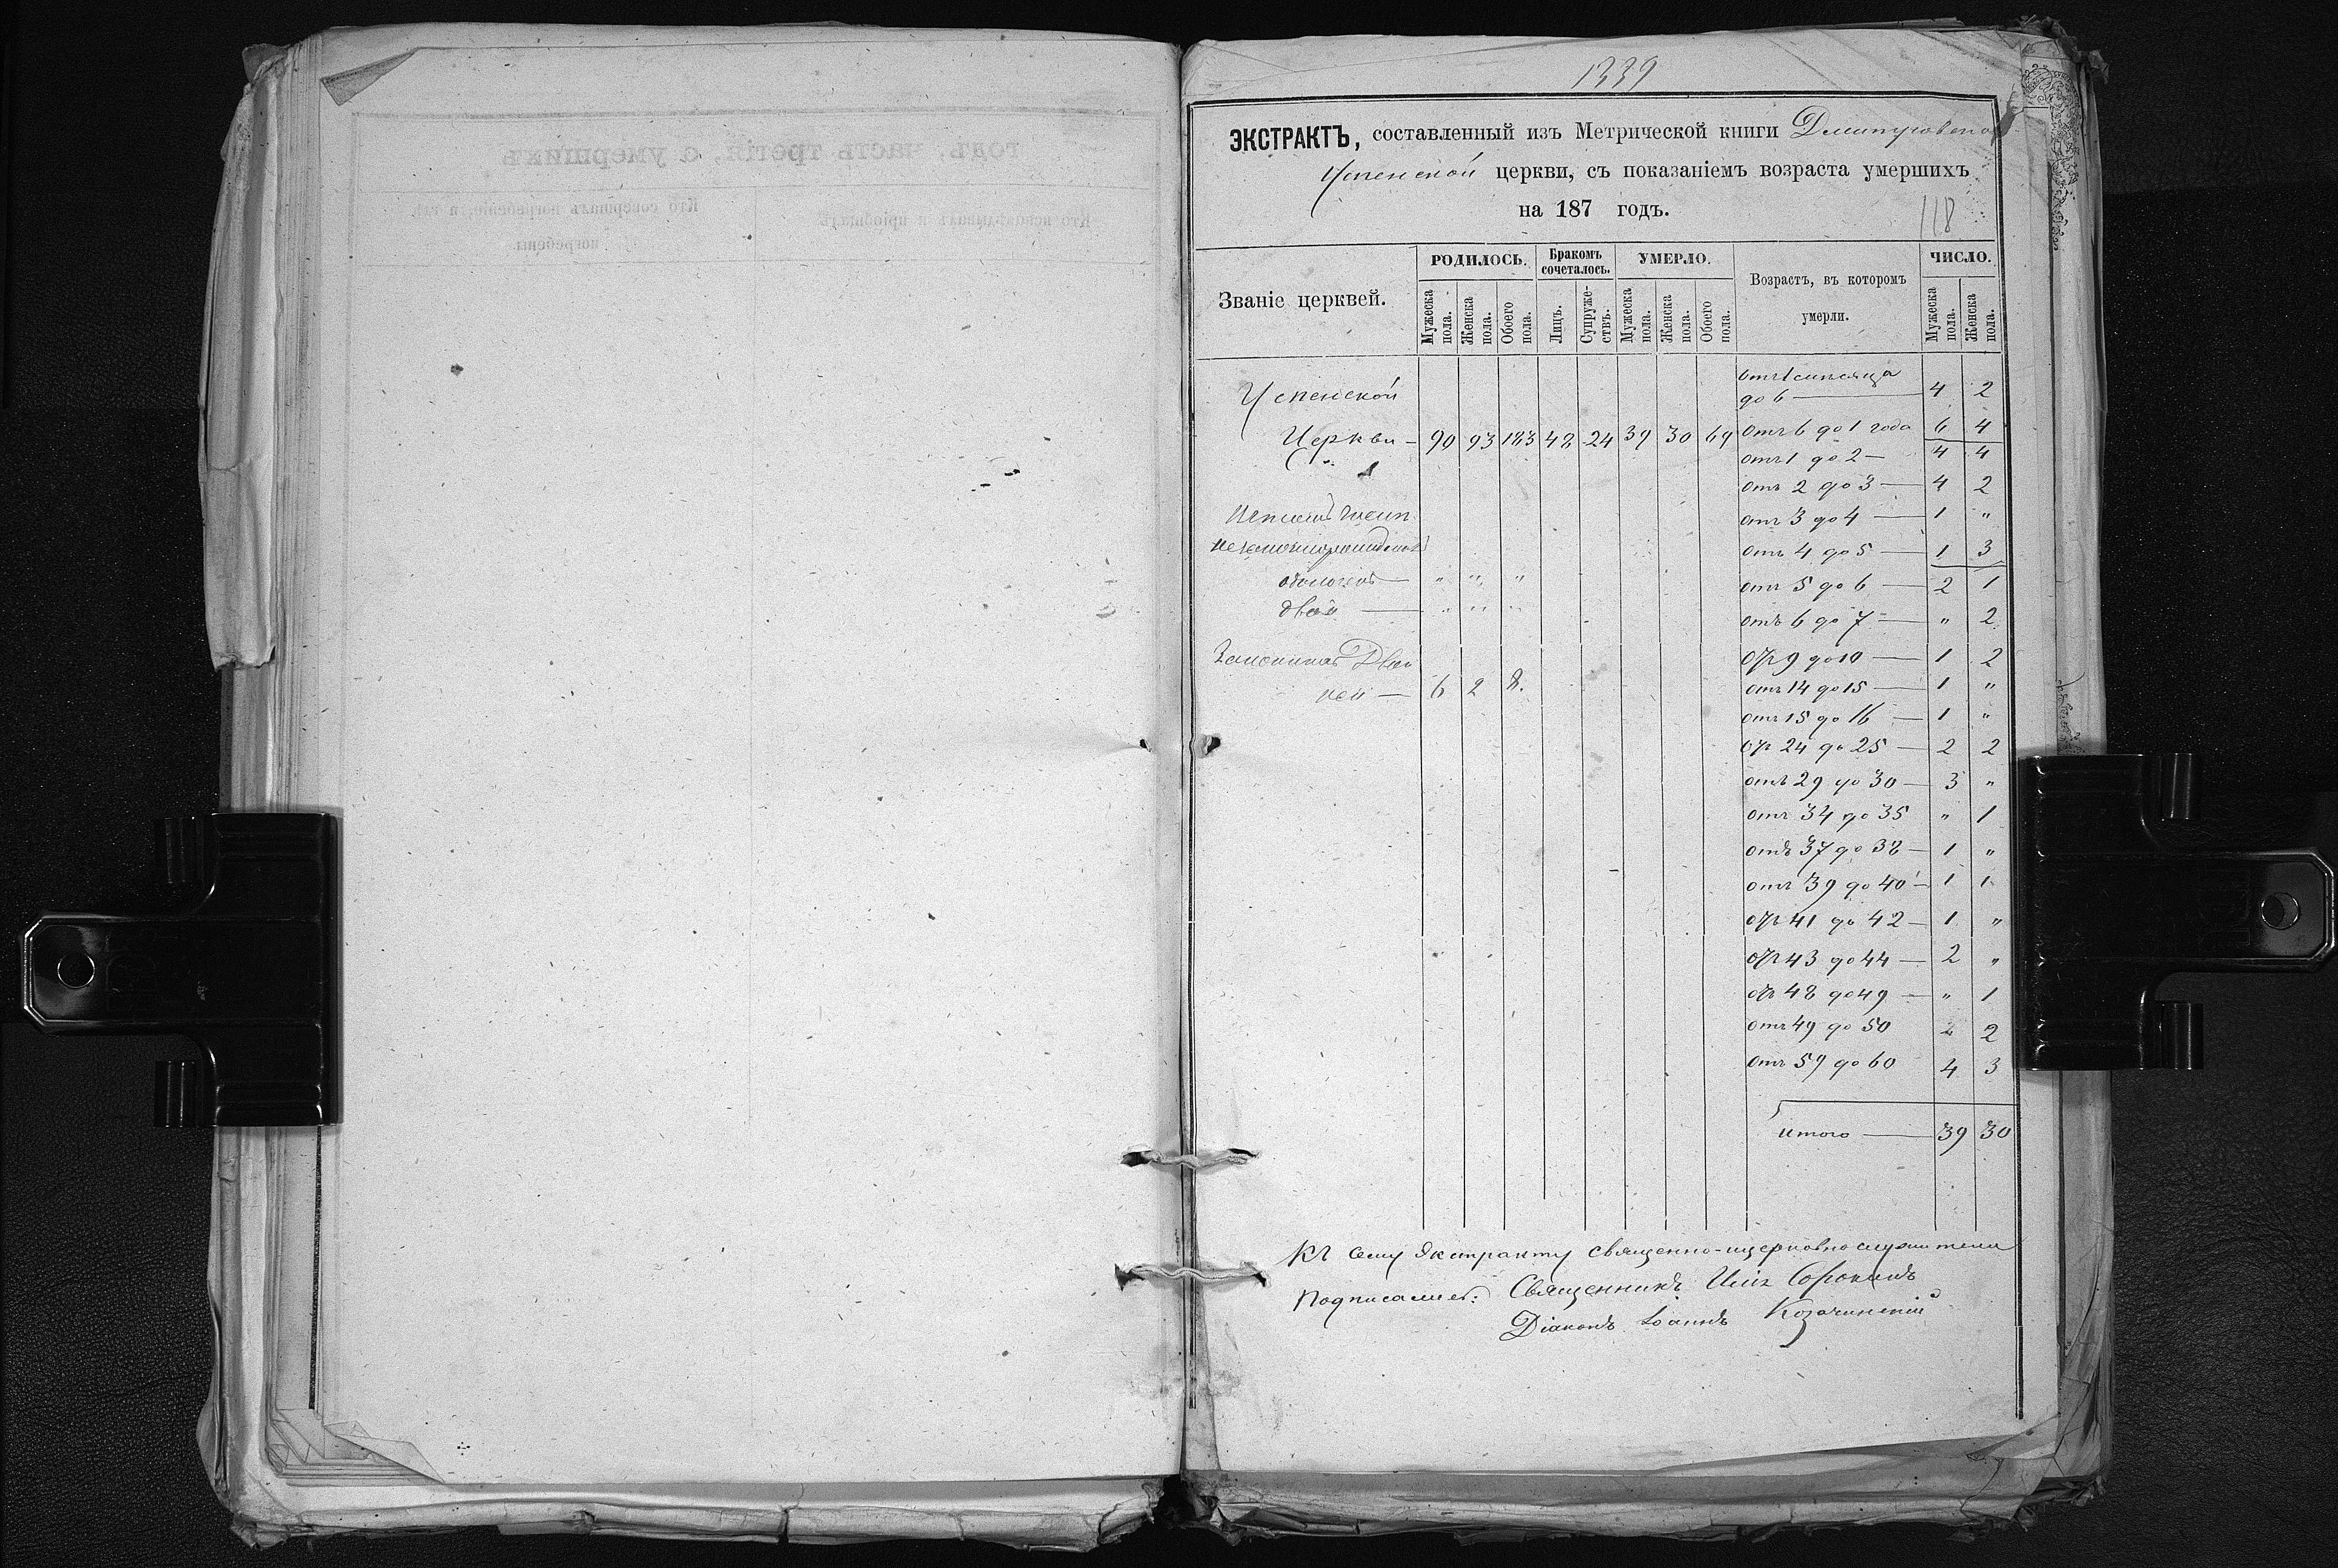 1339
ЭКСТРАКТЪ, составленный изъ Метрической книги
Успенской церкви, съ показаніемъ возраста умершихъ
на 187 годъ.
118
Званіе церквей.
РОДИЛОСЬ. Бракомъ сочеталось. УМЕРЛО. Возрастъ, въ которомъ умерли. ЧИСЛО.
Мужеска пола. Женска пола. Обоего пола. Лицъ. Супружествъ. Мужеска пола. Женска пола. Обоего пола. Мужеска пола. Женска пола.
Успенской
Церкви — 90 93 183 48 24 39 30 69
" " "
двой — " " "
Законныхъ Двой
ней — 6 2 8.
отъ 1 мѣсяца
до 6 — 4 2
отъ 6 до 1 года 6 4
отъ 1 до 2 — 4 4
отъ 2 до 3 — 4 2
отъ 3 до 4 — 1 "
отъ 4 до 5 — 1 3
отъ 5 до 6 — 2 1
отъ 6 до 7 — " 2
отъ 9 до 10 — 1 2
отъ 14 до 15 — 1 "
отъ 15 до 16 — 1 "
отъ 24 до 25 — 2 2
отъ 29 до 30 — 3 "
отъ 34 до 35 " 1
отъ 37 до 38 — 1 "
отъ 39 до 40 — 1 1
отъ 41 до 42 — 1 "
отъ 43 до 44 — 2 "
отъ 48 до 49 — " 1
отъ 49 до 50 2
отъ 59 до 60 4 3
итого — 39 30
Къ сему экстракту священно-церковно служители
подписались: Священникъ Илія Сорокинъ
Діаконъ Іоаннъ Козачинскій